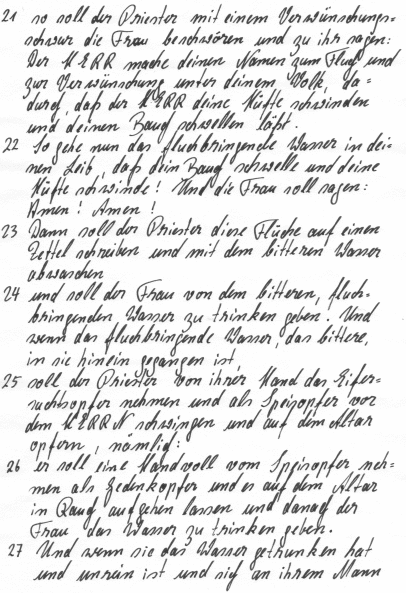 21 so soll der Priester mit einem Verwünschungs-
schwur die Frau beschwören und zu ihr sagen:
Der HERR mache deinen Namen zum Fluch und
zur Verwünschung unter deinem Volk, da-
durch, daß der HERR deine Hüfte schwinden
und deinen Bauch schwellen läßt.
22 So gehe nun das fluchbringende Wasser in dei-
nen Leib, daß dein Bauch schwelle und deine
Hüfte schwinde! Und die Frau soll sagen:
Amen! Amen!
23 Dann soll der Priester diese Flüche auf einen
Zettel schreiben und mit dem bitteren Wasser
abwaschen
24 und soll der Frau von dem bitteren, fluch-
bringenden Wasser zu trinken geben. Und
wenn das fluchbringende Wasser, das bittere,
in sie hinein gegangen ist,
25 soll der Priester von ihrer Hand das Eifer-
suchtsopfer nehmen und als Speisopfer vor
dem HERRN schwingen und auf dem Altar
opfern, nämlich:
26 er soll eine Handvoll vom Speisopfer neh-
men als Gedenkopfer und es auf dem Altar
in Rauch aufgehen lassen und danach der
Frau das Wasser zu trinken geben.
27 Und wenn sie das Wasser getrunken hat
und unrein ist und sich an ihrem Mann